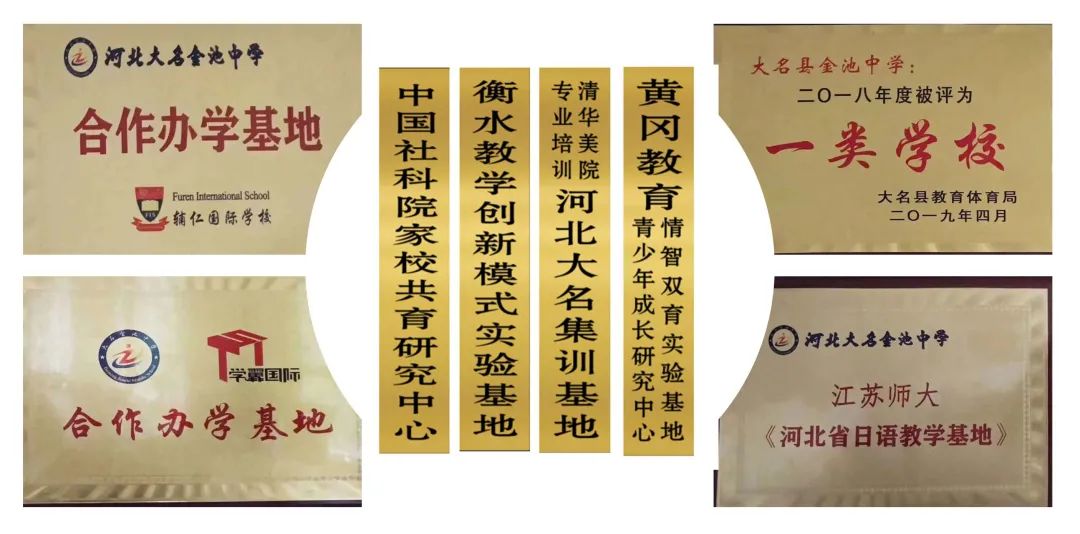 河北大名金池中学
合作办学基地
Furen International School
FIS
辅仁国际学校
学翼国际
合作办学基地
中国社科院家校共育研究中心
衡水教学创新模式实验基地
清华美院
专业培训
河北大名集训基地
黄冈教育
情智双育实验基地
青少年成长研究中心
大名县金池中学：
二〇一八年度被评为
一类学校
大名县教育体育局
二〇一九年四月
河北大名金池中学
江苏师大
《河北省日语教学基地》